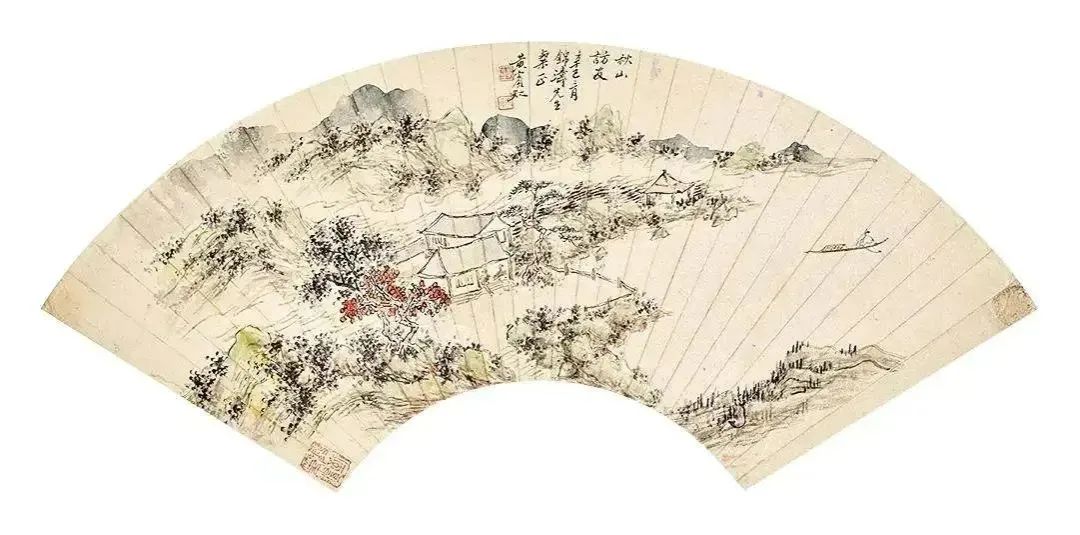 秋山
訪友
辛巳二月
錦濤先生
粲正
黃賓虹